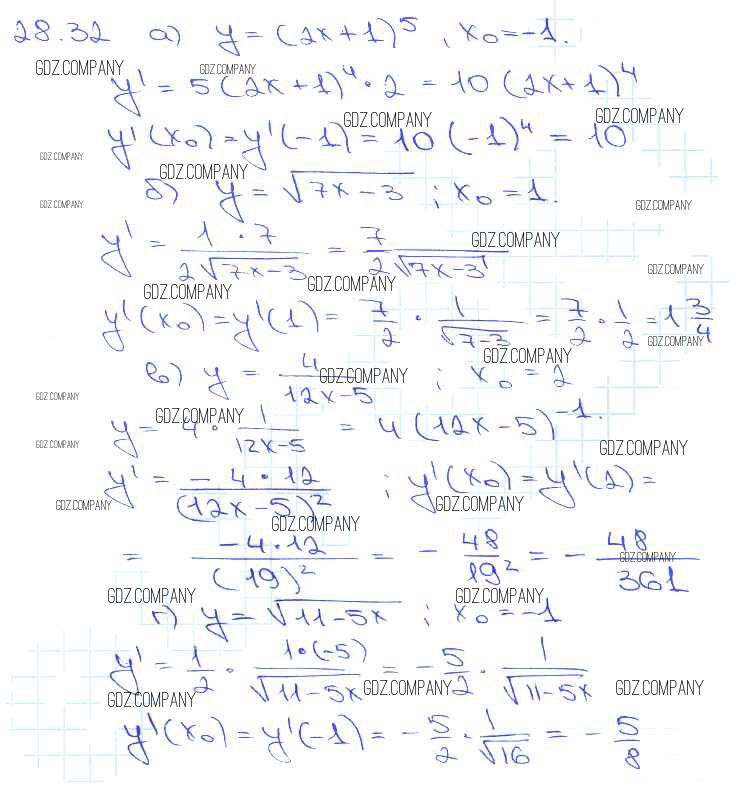 28.32 а) y = (2x+1)^5 , x₀ = -1.
GDZ.COMPANY GDZ.COMPANY
y' = 5(2x+1)^4 · 2 = 10(2x+1)^4
GDZ.COMPANY GDZ.COMPANY
y'(x₀) = y'(-1) = 10(-1)^4 = 10
GDZ.COMPANY
GDZ.COMPANY
б) y = √(7x-3) ; x₀ = 1.
GDZ.COMPANY GDZ.COMPANY
y' = (1·7)/(2√(7x-3)) = 7/(2√(7x-3))
GDZ.COMPANY
GDZ.COMPANY
GDZ.COMPANY GDZ.COMPANY
y'(x₀) = y'(1) = 7/2 · 1/√(7-3) = 7/2 · 1/2 = 1 3/4
GDZ.COMPANY
GDZ.COMPANY
в) y = 4/(12x-5) ; x₀ = 2
GDZ.COMPANY
GDZ.COMPANY
GDZ.COMPANY
y = 4 · 1/(12x-5) = 4(12x-5)^-1.
GDZ.COMPANY GDZ.COMPANY
y' = (-4·12)/(12x-5)² ; y'(x₀) = y'(2) =
GDZ.COMPANY GDZ.COMPANY
GDZ.COMPANY
= (-4·12)/(19)² = - 48/19² = - 48/361
GDZ.COMPANY
GDZ.COMPANY GDZ.COMPANY
г) y = √(11-5x) ; x₀ = -1
y' = 1/2 · (1·(-5))/√(11-5x) = - 5/2 · 1/√(11-5x)
GDZ.COMPANY GDZ.COMPANY GDZ.COMPANY
y'(x₀) = y'(-1) = - 5/2 · 1/√16 = - 5/8